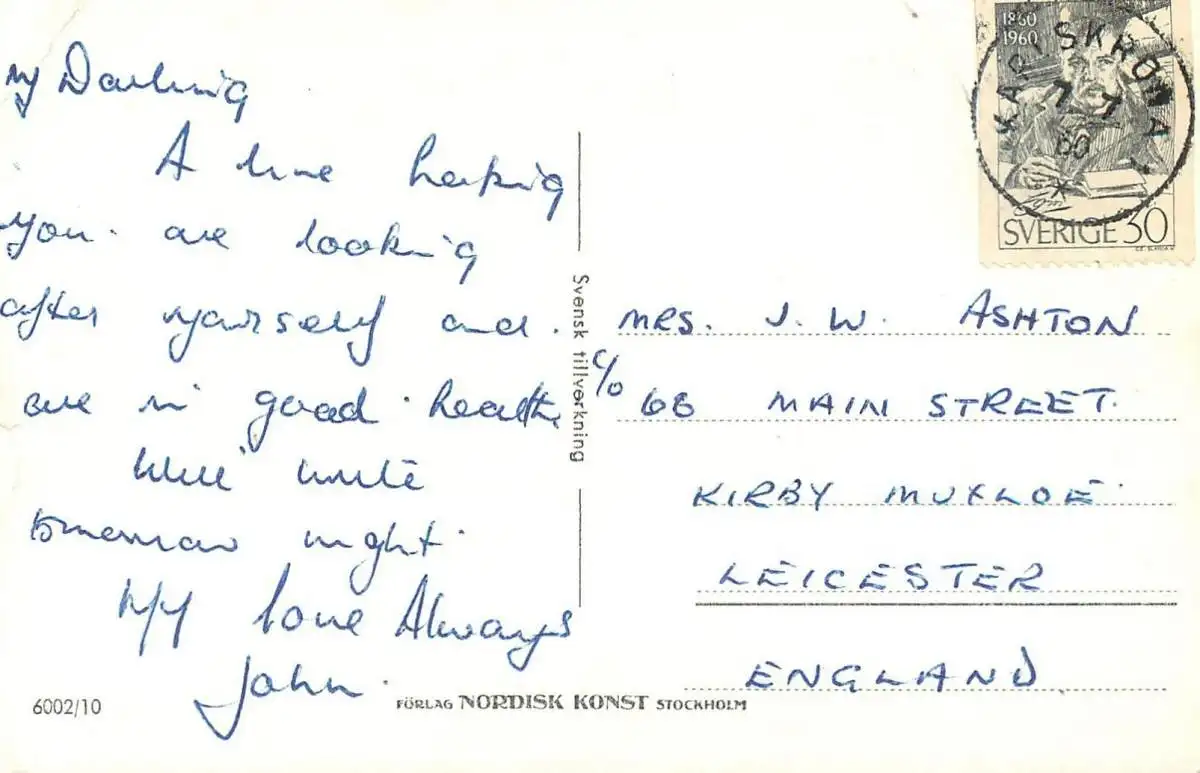 My Darling
A line hoping
you are looking
after yourself and
are in good health
Will write
tomorrow night.
My love Always
John.
6002/10
Svensk tillverkning
FÖRLAG NORDISK KONST STOCKHOLM
1860
1960
KARLSKRONA 1
7 7
60
SVERIGE 30
MRS. J. W. ASHTON
c/o 68 MAIN STREET.
KIRBY MUXLOE
LEICESTER
ENGLAND